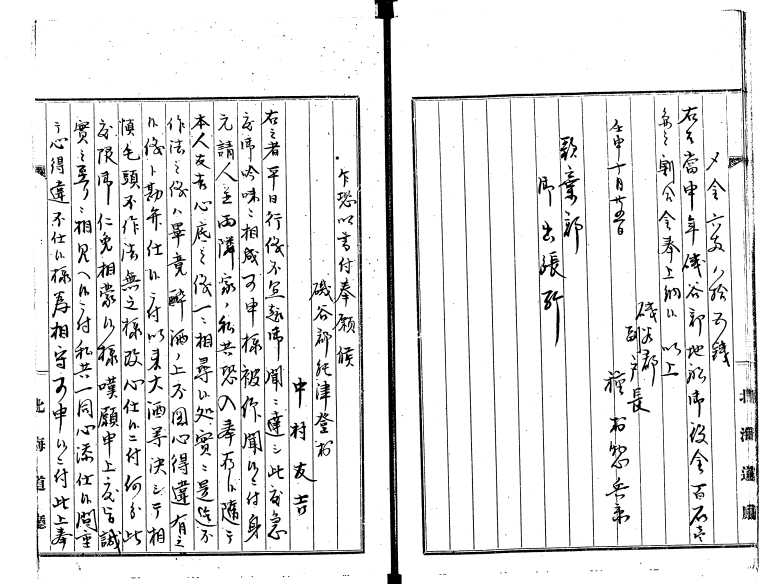 〆金六支八拾五銭
右者當申年磯谷郡地船御役金百石
割合金奉上納候以上
壬申十月廿五日
磯谷郡
副戸長
種田惣兵衛
歌棄郡
御出張所
乍恐以書付奉願候
磯谷郡能津登村
中村友吉
右之者平日行儀不宜趣御聞ニ達シ此度急
度御吟味ニ相成可申様被仰聞候ニ付身
元請人并両隣家ノ私共恐入奉存候随テ
本人友吉心底之儀一々相尋候処実ニ是迄不
作法之儀ハ畢竟酔酒ノ上不図心得違有之
候儀ト勘弁仕候ニ付以来大酒等決シテ相
慎毛頭不作法無之様改心仕候ニ付何分此
度限御仁免相蒙候様嘆願申上度旨誠
実之至リニ相見ヘ候ニ付私共一同心添仕候間重
テ心得違不仕候様為相守可申候ニ付此上奉
北海道廳